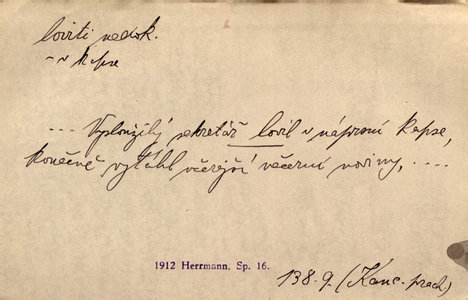 loviti nedok.
- v kapse
... Vysloužilý sekretář lovil v náprsní kapse,
konečně vytáhl včerejší večerní noviny, ....
1912 Herrmann, Sp. 16.
138-9. (Kanc. prach.)